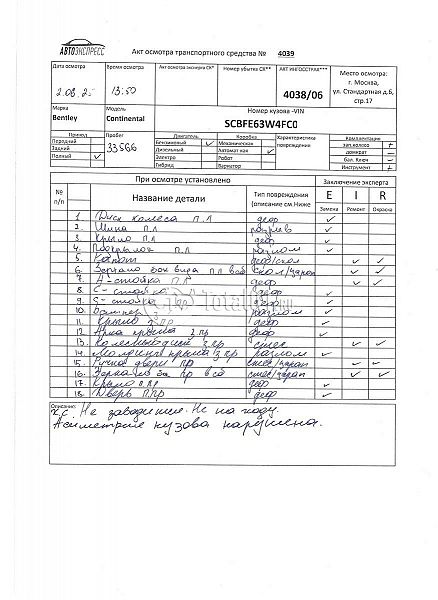 АВТОЭКСПРЕСС
Акт осмотра транспортного средства № 4039
Дата осмотра Время осмотра Акт осмотра эксперта СК* Номер убытка СК** АКТ ИНГОССТРАХ*** Место осмотра:
г. Москва,
ул. Стандартная д.6,
стр.17
13:50 4038/06
Марка Модель Номер кузова -VIN
Bentley Continental SCBFE63W4FC0
Привод Пробег Двигатель Коробка Характеристики повреждений Комплектация
Передний 33566 Бензиновый ✓ Механическая зап.колесо +
Задний Дизельный Автоматная ✓ домкрат -
Полный ✓ Электро Робот бал. Ключ ✓
Гибрид Вариатор Инструмент +
При осмотре установлено Заключение эксперта
№ п/п Название детали Тип повреждения (описание см.Ниже E I R
Замена Ремонт Окраска
1. Диск колеса П.Л деф ✓
2. Шина П.Л разрыв ✓
3. Крыло П.Л деф ✓
4. Подкрылок П.Л разлом ✓
5. Капот деф/скол ✓ ✓
6. Зеркало П.Л в сб скол/царап ✓ ✓
7. А-стойка П.Л деф ✓ ✓
8. С-стойка деф ✓
9. стойка деф ✓
10. Бампер разлом ✓
11. Крыло з.пр деф ✓
12. Арка з.пр деф ✓
13. Колесный диск з.пр стес ✓ ✓
14. Молдинг крыла з.пр разлом ✓
15. Ручка двери пр стес/царап ✓ ✓
16. Зеркало пр в сб стес/царап ✓ ✓
17. Крыло П.Пр деф ✓
18. Дверь П.Пр деф ✓
Описание: Х.С. Не заводится. Не на ходу.
Асиметрия кузова нарушена.